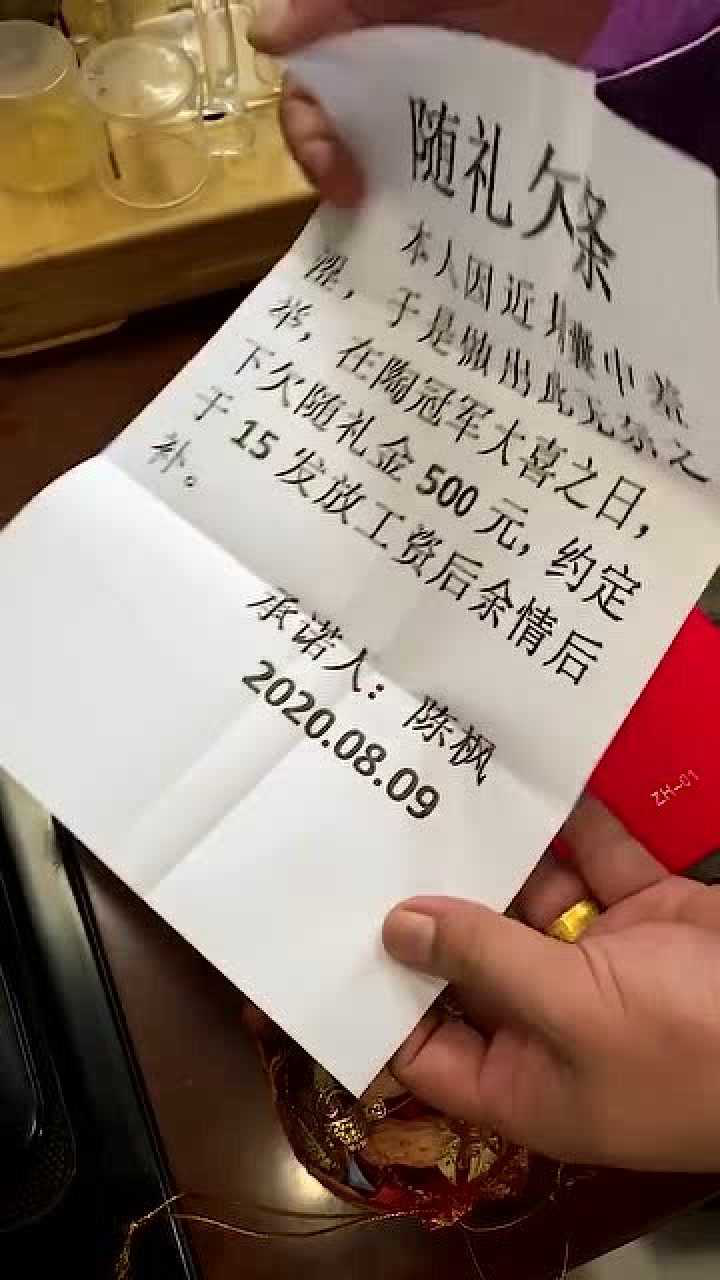 随礼欠条
本人因近期囊中羞
涩，于是做出此无奈之
举，在陶冠军大喜之日，
下欠随礼金 500 元，约定
于 15 发放工资后余情后
补。
承诺人：陈枫
2020.08.09
ZH-01